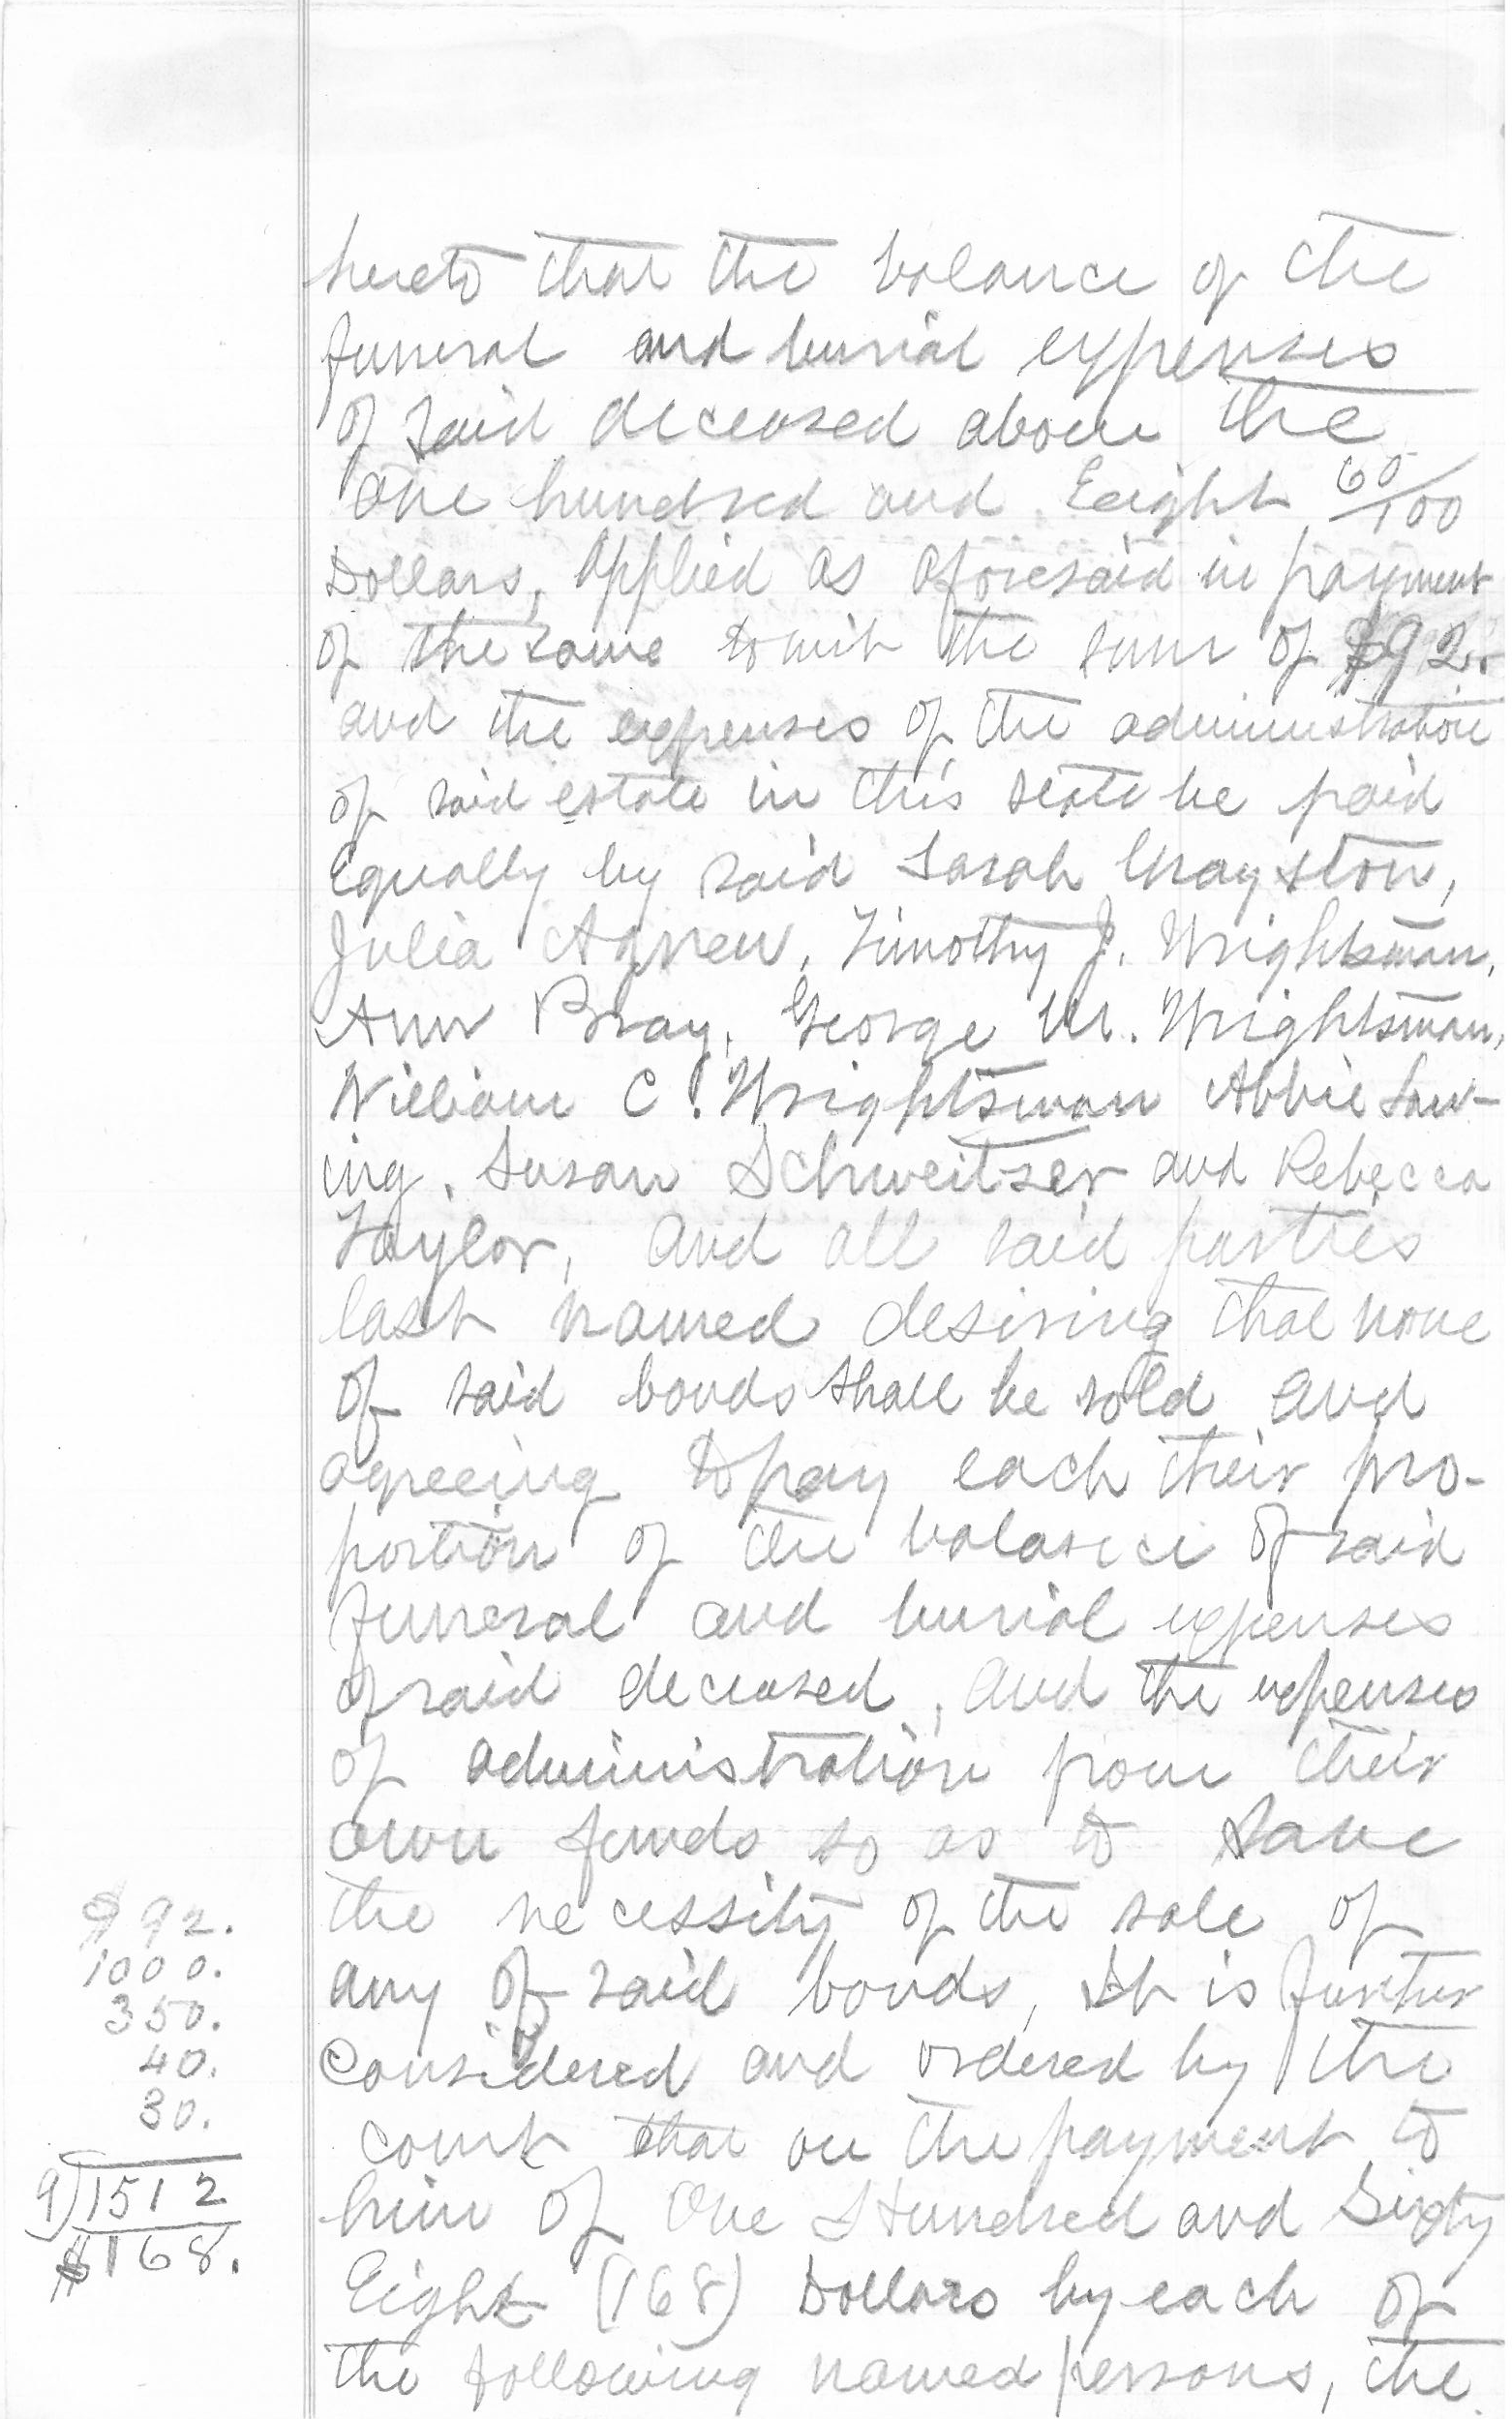 hereto that the balance of the
funeral and burial expenses
of said deceased above the
one hundred and Eeight 60/100
Dollars, applied as aforesaid in payment
of the same towit the sum of $92..
and the expenses of the administration
of said estate in this state be paid
Equally by said Sarah Grayston,
Julia Agnew, Timothy J. Wrightsman,
Ann Bray, George M. Wrightsman,
William C. Wrightsman Abbie Law-
ing, Susan Schweitzer and Rebecca
Taylor, and all said parties
last named desiring that none
of said bonds shall be sold and
agreeing to pay each their pro-
portion of the balance of said
funeral and burial expenses
of said deceased, and the expenses
of administration from their
own funds so as to save
the necessity of the sale of
any of said bonds, It is further
Considered and ordered by the
court that on the payment to
him of One Hundred and Sixty
Eight (168) Dollars by each of
the following named persons, the
$92.
1000.
350.
40.
30.
9)1512
$168.